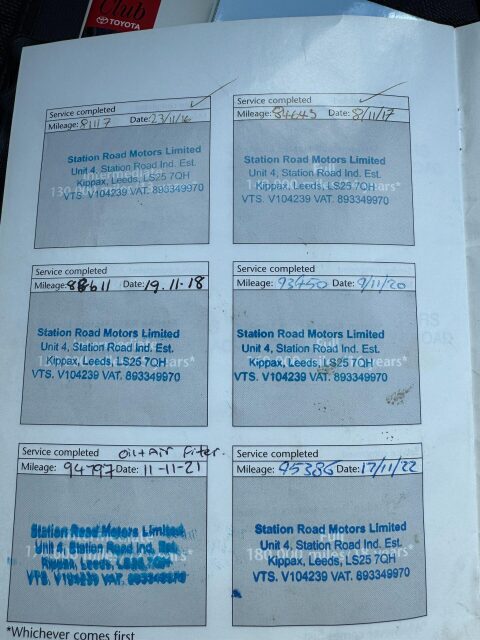 Club
TOYOTA
Service completed
Mileage: 8117 Date: 23/11/16
Station Road Motors Limited
Unit 4, Station Road Ind. Est.
Kippax, Leeds, LS25 7QH
VTS. V104239 VAT. 893349970
Service completed
Mileage: 84643 Date: 8/11/17
Station Road Motors Limited
Unit 4, Station Road Ind. Est.
Kippax, Leeds, LS25 7QH
VTS. V104239 VAT. 893349970
Service completed
Mileage: 88611 Date: 19.11-18
Station Road Motors Limited
Unit 4, Station Road Ind. Est.
Kippax, Leeds, LS25 7QH
VTS. V104239 VAT. 893349970
Service completed
Mileage: 93450 Date: 9/11/20
Station Road Motors Limited
Unit 4, Station Road Ind. Est.
Kippax, Leeds, LS25 7QH
VTS. V104239 VAT. 893349970
Service completed oil + Air filter.
Mileage: 94797 Date: 11-11-21
Station Road Motors Limited
Unit 4, Station Road Ind. Est.
Kippax, Leeds, LS25 7QH
VTS. V104239 VAT. 893349970
Service completed
Mileage: 95386 Date: 17/11/22
Station Road Motors Limited
Unit 4, Station Road Ind. Est.
Kippax, Leeds, LS25 7QH
VTS. V104239 VAT. 893349970
*Whichever comes first